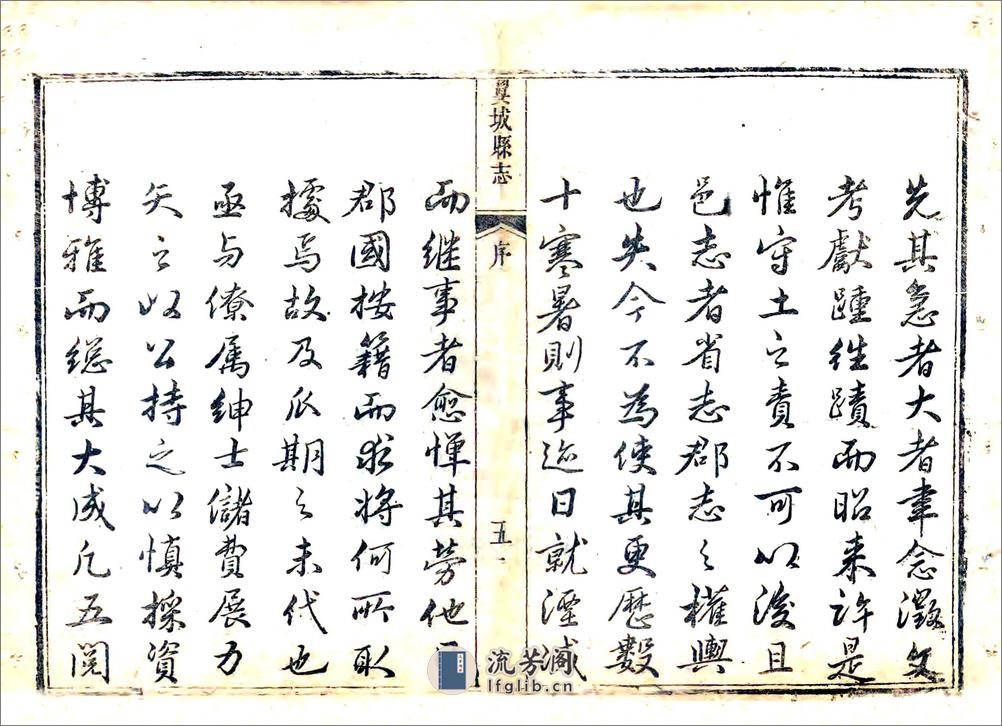 先其急者大者聿念徵文
考獻踵往蹟而昭来許是
惟守土之責不可以後且
邑志者省志郡志之權輿
也失今不為使其更歷數
十寒暑則事迹日就湮滅
翼城縣志
序
五
而继事者愈憚其勞他
郡國按籍而求将何所取
據焉故及瓜期之未代也
亟与僚属紳士儲費展力
矢之以公持之以慎採資
博雅而緫其大成凡五閲
流芳阁
lfglib.cn